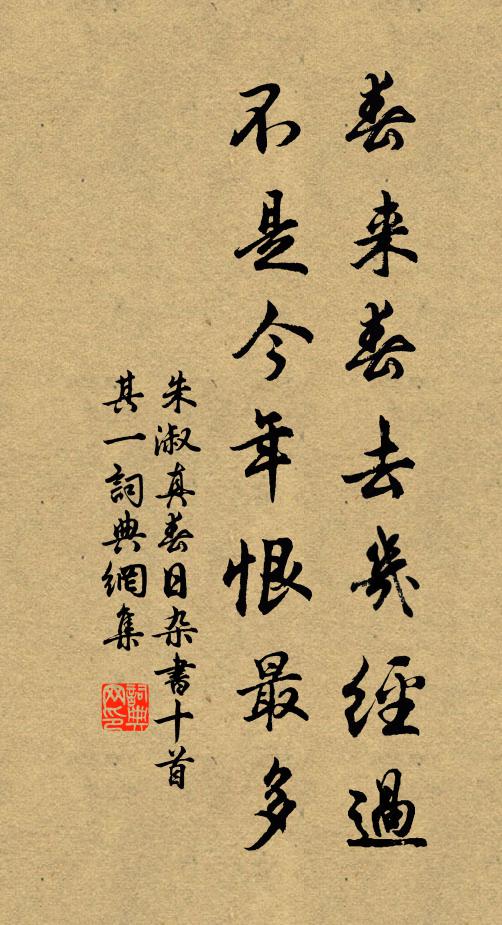 春来春去幾經過
不是今年恨最多
朱淑真春日杂書十首
其一詞典網集
詞典网印